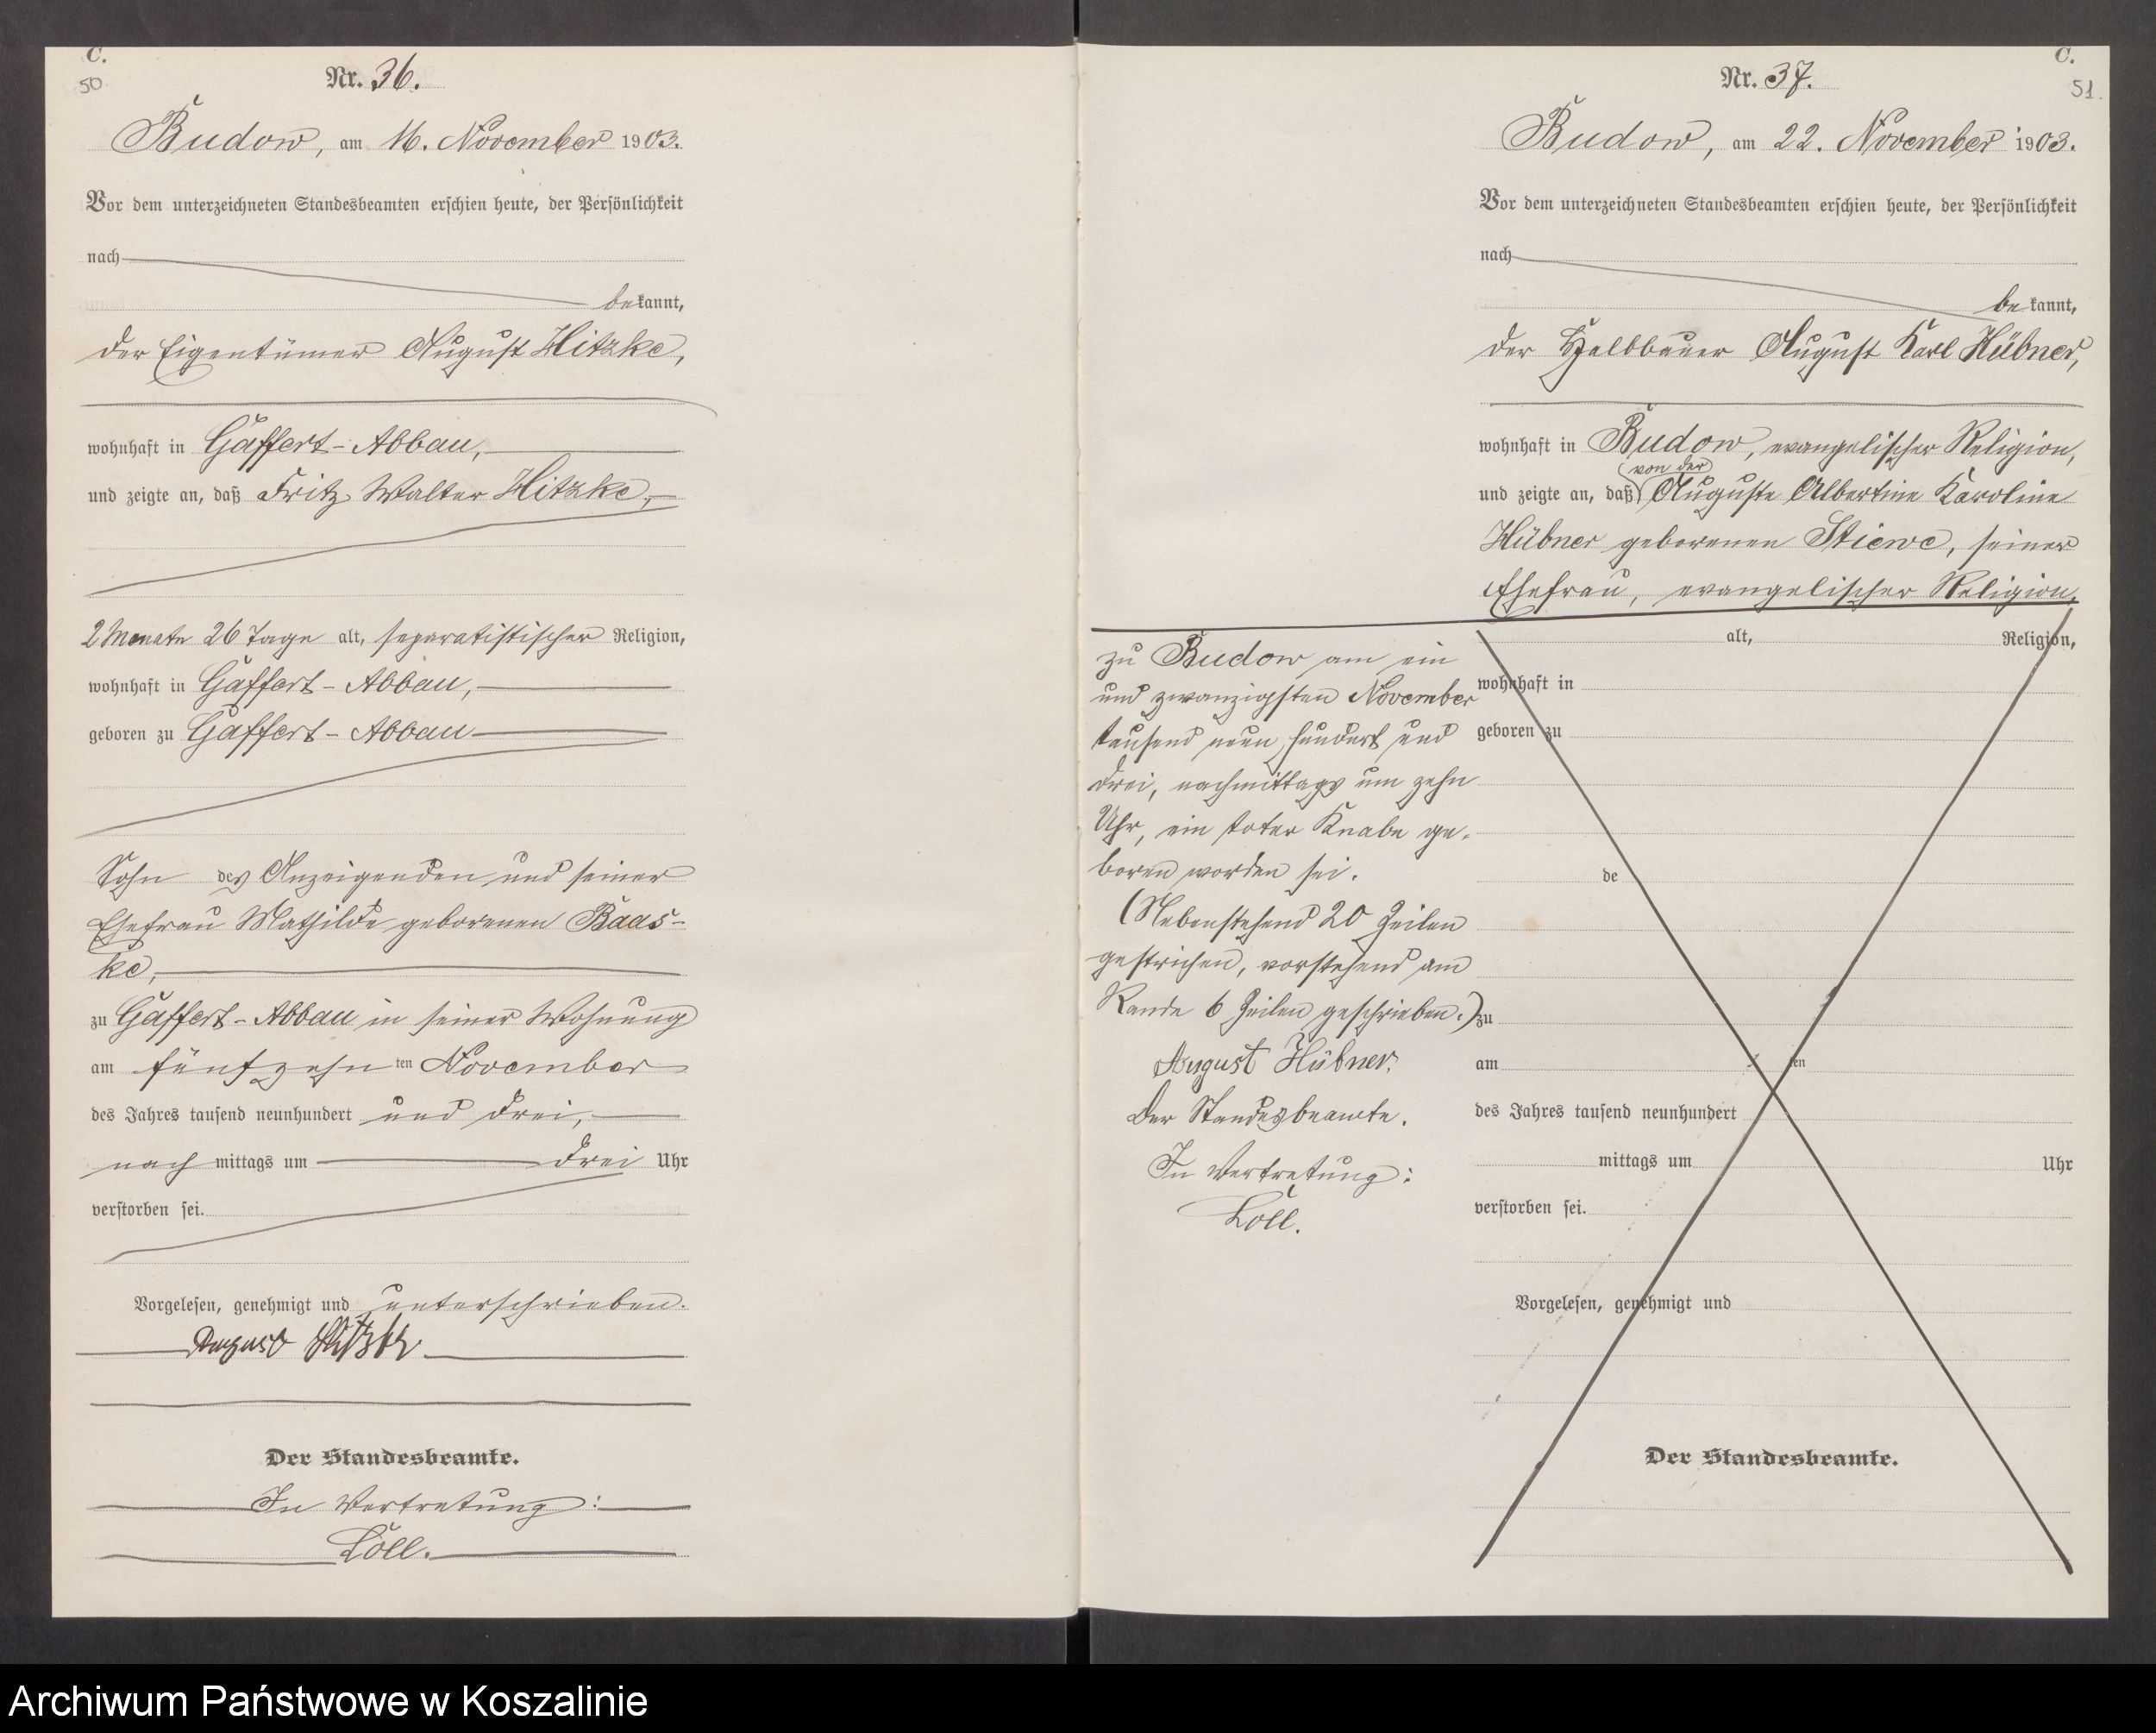 C.
50
Nr. 36.
Budow, am 16. November 1903.
Vor dem unterzeichneten Standesbeamten erschien heute, der Persönlichkeit
nach
bekannt,
der Eigentümer August Hitzke,
wohnhaft in Gaffert-Abbau,
und zeigte an, daß Fritz Walter Hitzke,
2 Monate 26 Tage alt, separatistischer Religion,
wohnhaft in Gaffert-Abbau,
geboren zu Gaffert-Abbau
Sohn des Anzeigenden und seiner
Ehefrau Mathilde geborenen Baas-
ke,
zu Gaffert-Abbau in seiner Wohnung
am fünfzehn ten November
des Jahres tausend neunhundert und drei,
nach mittags um drei Uhr
verstorben sei.
Vorgelesen, genehmigt und unterschrieben.
August Hitzke
Der Standesbeamte.
In Vertretung:
Löll.
C.
51.
Nr. 37.
Budow, am 22. November 1903.
Vor dem unterzeichneten Standesbeamten erschien heute, der Persönlichkeit
nach
bekannt,
der Halbbauer August Karl Hübner,
wohnhaft in Budow, evangelischer Religion,
(von der)
und zeigte an, daß Auguste Albertine Karoline
Hübner geborenen Stiewe, seiner
Ehefrau, evangelischer Religion,
zu Budow am ein
und zwanzigsten November
tausend neun hundert und
drei, nachmittags um zehn
Uhr, ein toter Knabe ge-
boren worden sei.
(Nebenstehend 20 Zeilen
gestrichen, vorstehend am
Rande 6 Zeilen geschrieben.)
August Hübner.
Der Standesbeamte.
In Vertretung:
Löll.
alt, Religion,
wohnhaft in
geboren zu
de
zu
am ten
des Jahres tausend neunhundert
mittags um Uhr
verstorben sei.
Vorgelesen, genehmigt und
Der Standesbeamte.
Archiwum Państwowe w Koszalinie